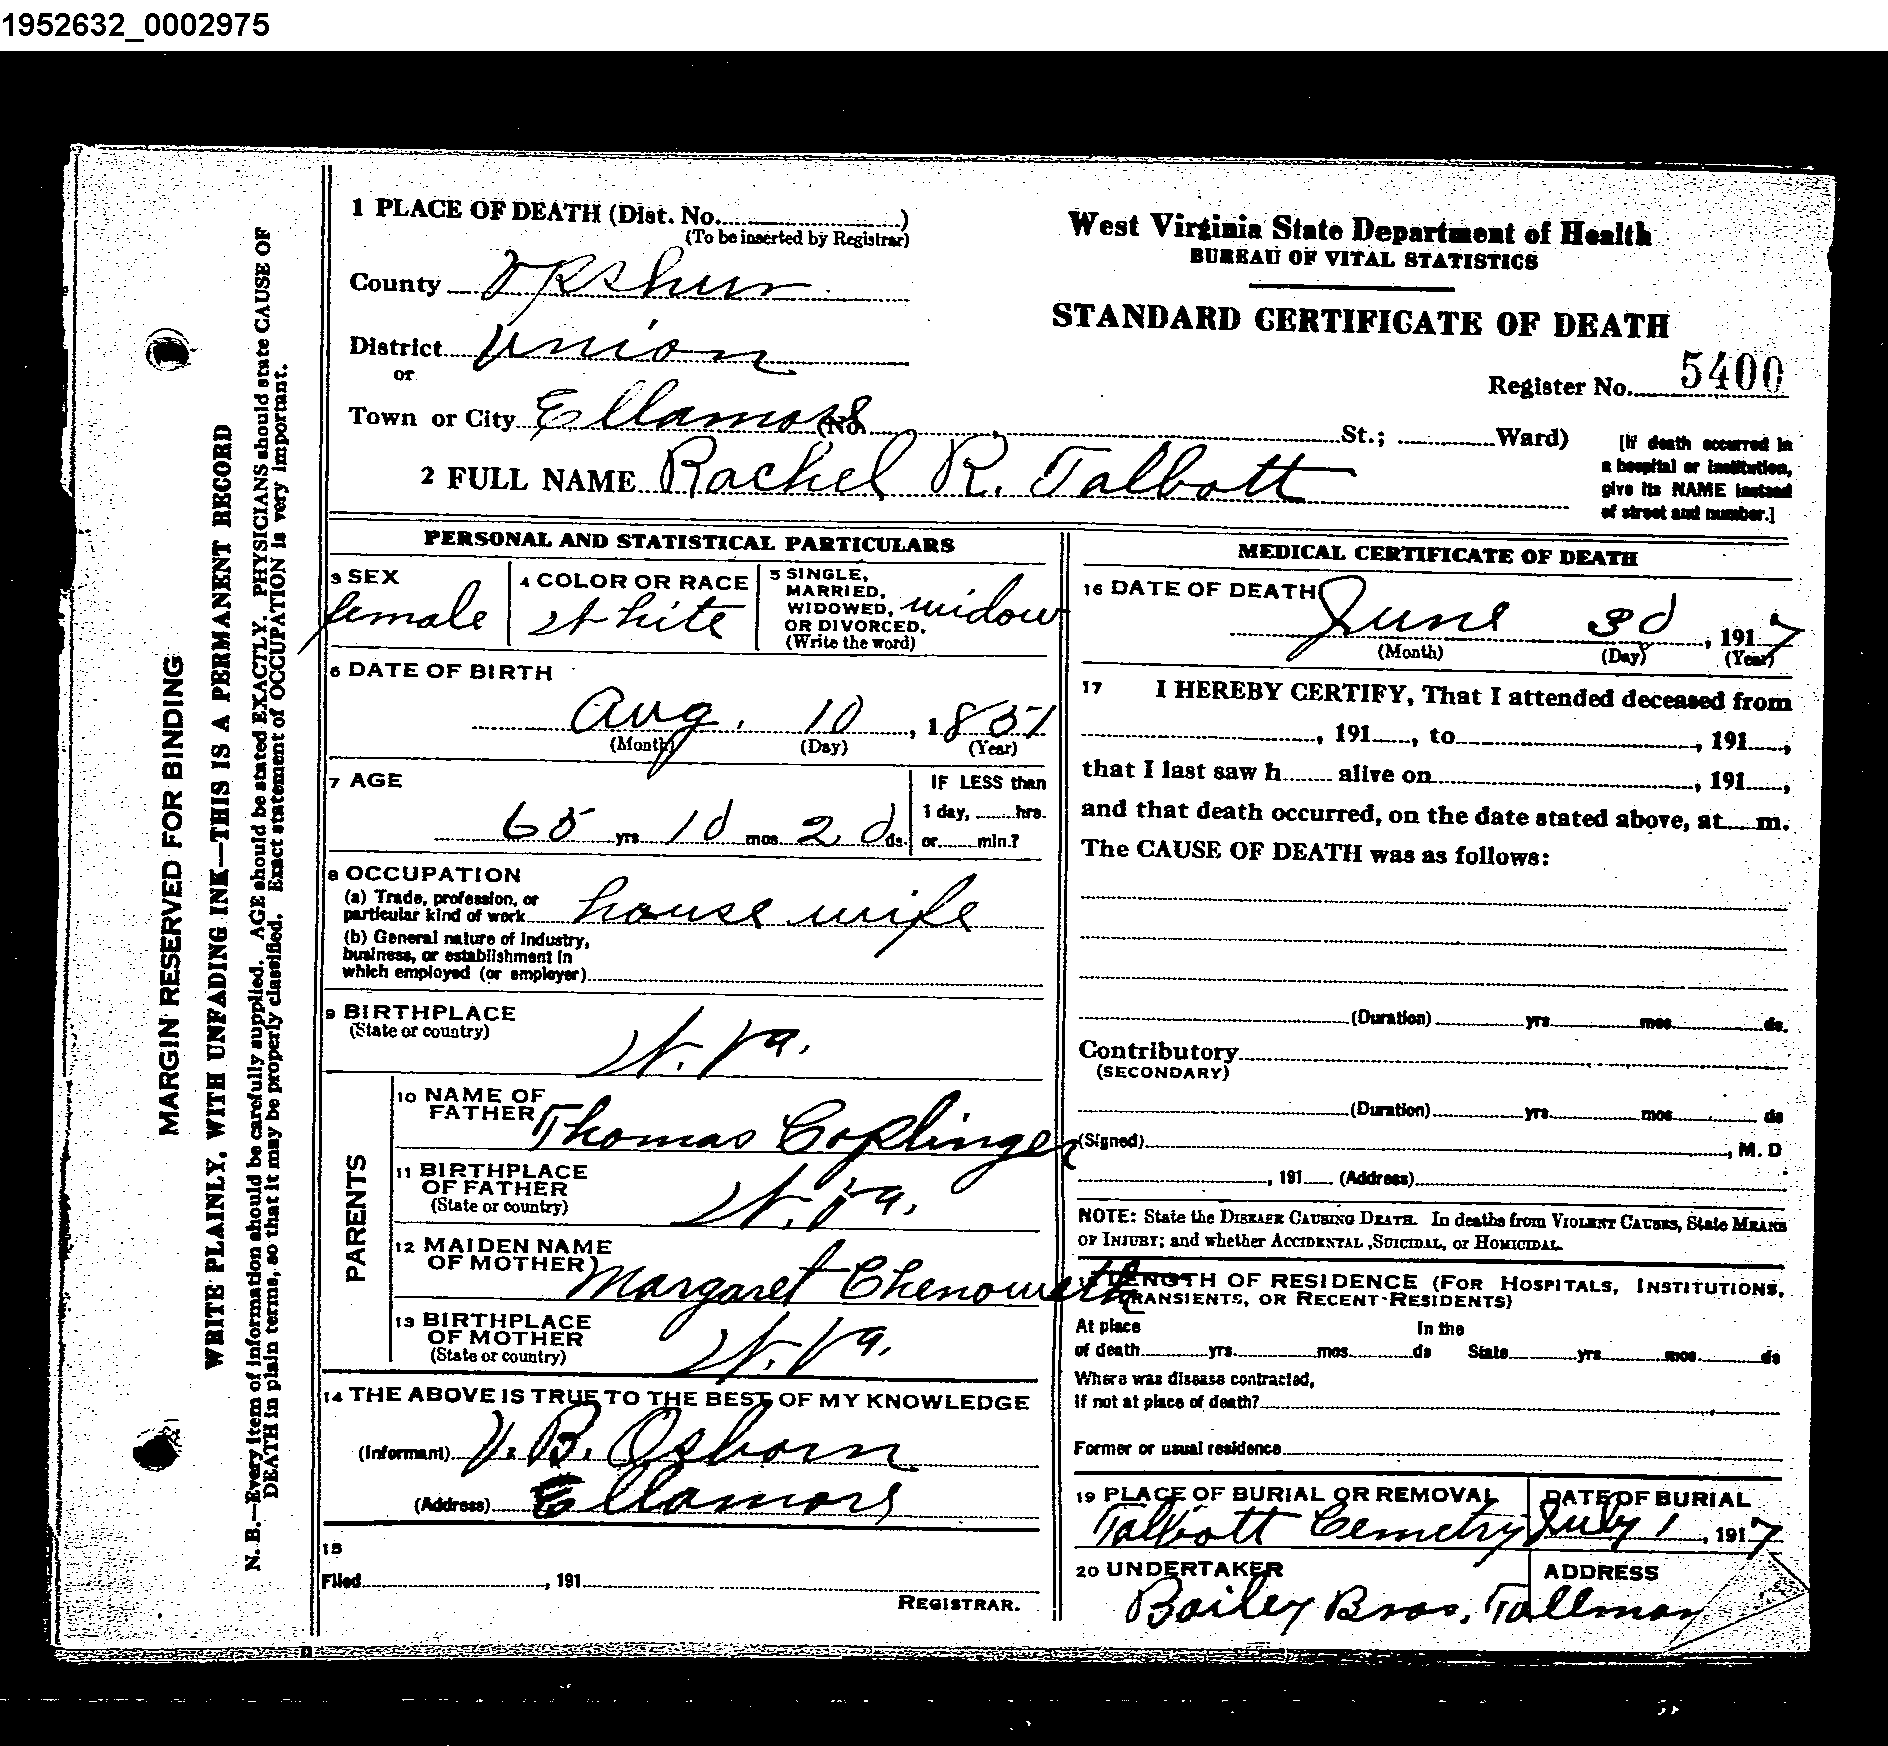 1952632_0002975
1 PLACE OF DEATH (Dist. No.)
(To be inserted by Registrar)
County Upshur
District Union
or
Town or City Ellamore (No. St.; Ward)
2 FULL NAME Rachel R. Talbott
West Virginia State Department of Health
BUREAU OF VITAL STATISTICS
STANDARD CERTIFICATE OF DEATH
Register No. 5400
[If death occurred in
a hospital or institution,
give its NAME instead
of street and number.]
MARGIN RESERVED FOR BINDING
WRITE PLAINLY, WITH UNFADING INK—THIS IS A PERMANENT RECORD
N. B.—Every item of information should be carefully supplied. AGE should be stated EXACTLY. PHYSICIANS should state CAUSE OF
DEATH in plain terms, so that it may be properly classified. Exact statement of OCCUPATION is very important.
PERSONAL AND STATISTICAL PARTICULARS
3 SEX
female
4 COLOR OR RACE
White
5 SINGLE,
MARRIED,
WIDOWED,
OR DIVORCED.
(Write the word)
widow
6 DATE OF BIRTH
Aug. 10, 1851
(Month) (Day) (Year)
7 AGE
65 yrs 10 mos 20 ds.
IF LESS than
1 day, hrs.
or min.?
8 OCCUPATION
(a) Trade, profession, or
particular kind of work house wife
(b) General nature of Industry,
business, or establishment in
which employed (or employer)
9 BIRTHPLACE
(State or country)
W. Va.
PARENTS
10 NAME OF
FATHER Thomas Coplinger
11 BIRTHPLACE
OF FATHER
(State or country)
W. Va.
12 MAIDEN NAME
OF MOTHER Margaret Chenoweth
13 BIRTHPLACE
OF MOTHER
(State or country)
W. Va.
14 THE ABOVE IS TRUE TO THE BEST OF MY KNOWLEDGE
(Informant) V. B. Osborn
(Address) Ellamore
15
Filed , 191
REGISTRAR.
MEDICAL CERTIFICATE OF DEATH
16 DATE OF DEATH
June 30, 1917
(Month) (Day) (Year)
17 I HEREBY CERTIFY, That I attended deceased from
, 191 , to , 191 ,
that I last saw h alive on , 191 ,
and that death occurred, on the date stated above, at m.
The CAUSE OF DEATH was as follows:
(Duration) yrs mos ds.
Contributory
(SECONDARY)
(Duration) yrs mos ds
(Signed) , M. D
, 191 (Address)
NOTE: State the DISEASE CAUSING DEATH. In deaths from VIOLENT CAUSES, State MEANS
OF INJURY; and whether ACCIDENTAL, SUICIDAL, or HOMICIDAL.
LENGTH OF RESIDENCE (FOR HOSPITALS, INSTITUTIONS,
TRANSIENTS, OR RECENT RESIDENTS)
At place In the
of death yrs. mos ds State yrs mos ds
Where was disease contracted,
If not at place of death?
Former or usual residence
19 PLACE OF BURIAL OR REMOVAL
Talbott Cemetry
DATE OF BURIAL
July 1, 1917
20 UNDERTAKER
Bailey Bros.
ADDRESS
Tallman